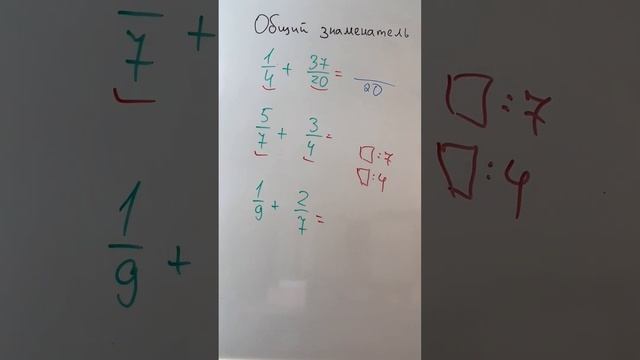 Общий знаменатель
1/4 + 37/20 = /20
5/7 + 3/4 =
□:7
□:4
1/9 + 2/7 =